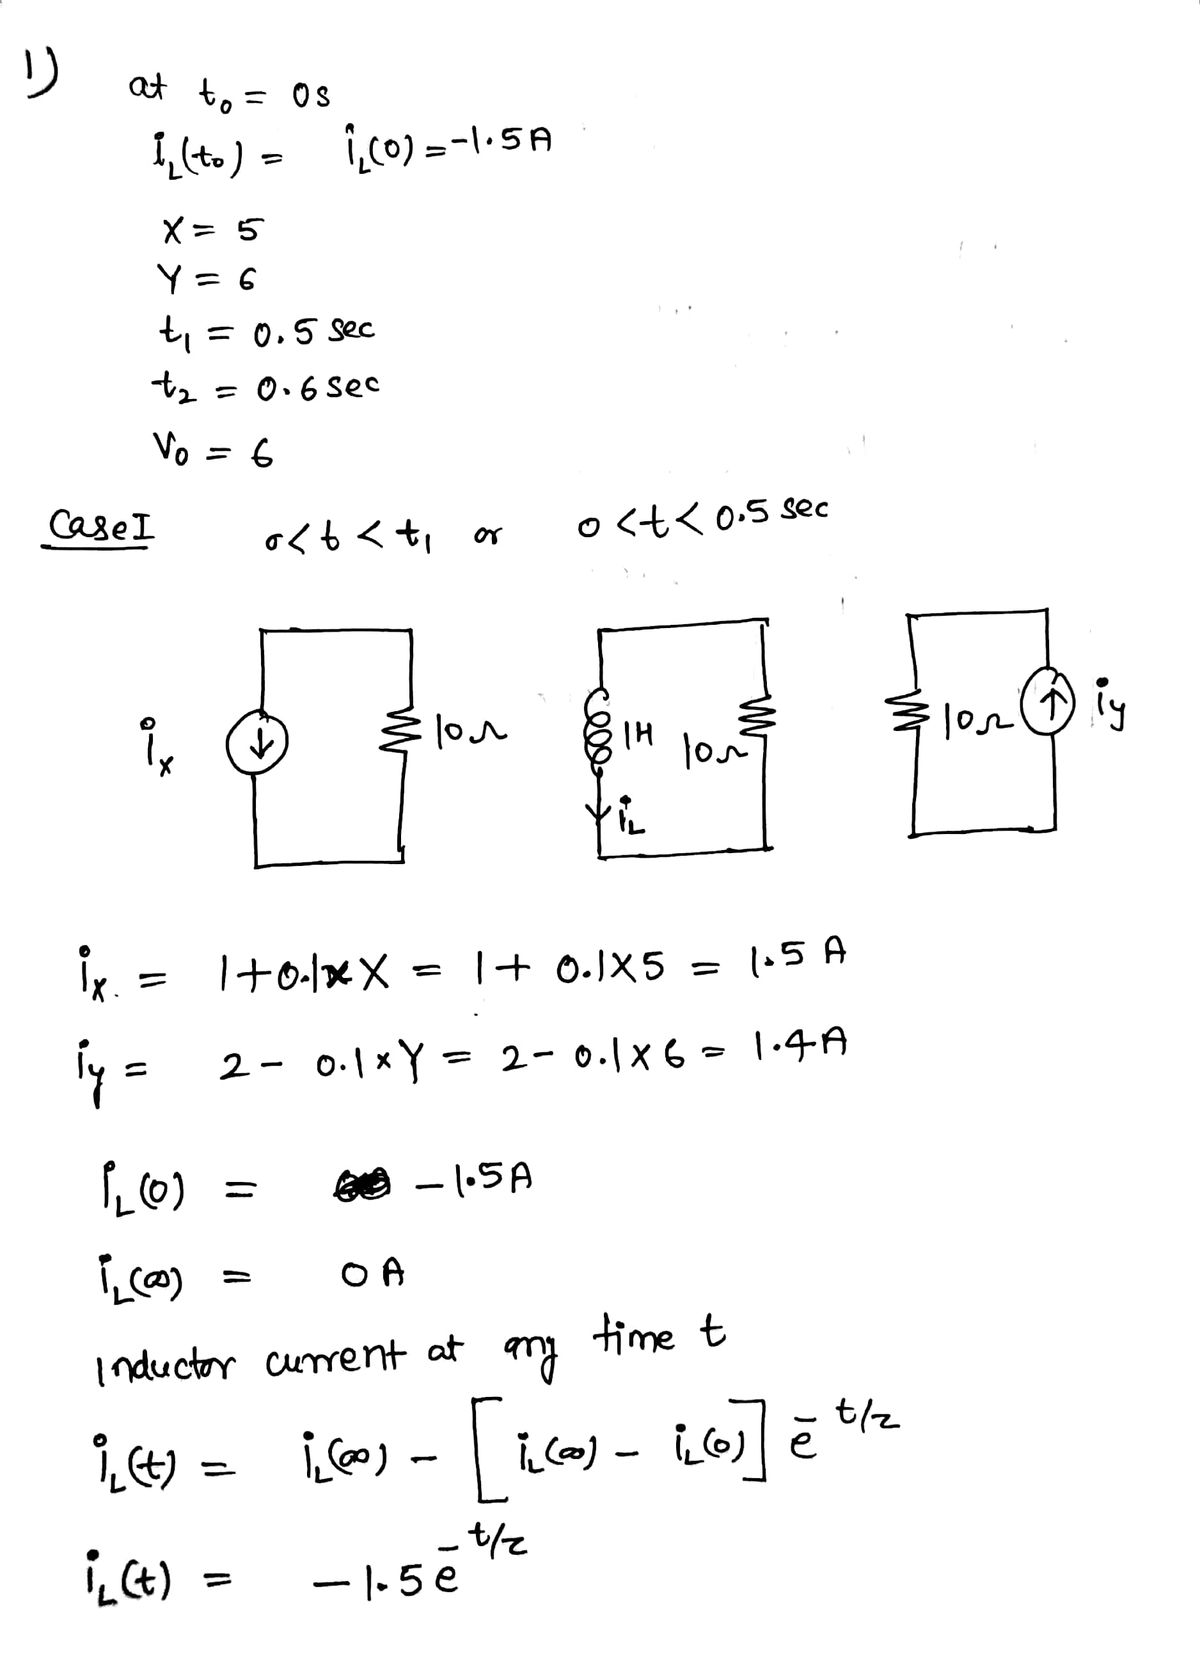 1)
at t₀ = 0s
i_L(t₀) = i_L(0) = -1.5A
X = 5
Y = 6
t₁ = 0.5 sec
t₂ = 0.6 sec
V₀ = 6
Case I 0<t<t₁ or 0<t<0.5 sec
i_x 10Ω 1H 10Ω i_L 10Ω i_y
i_x. = 1+0.1×X = 1+ 0.1×5 = 1.5 A
i_y = 2- 0.1×Y = 2- 0.1×6 = 1.4A
i_L(0) = -1.5A
i_L(∞) = 0 A
Inductor current at any time t
i_L(t) = i_L(∞) - [i_L(∞) - i_L(0)] e^-t/τ
i_L(t) = -1.5 e^-t/τ